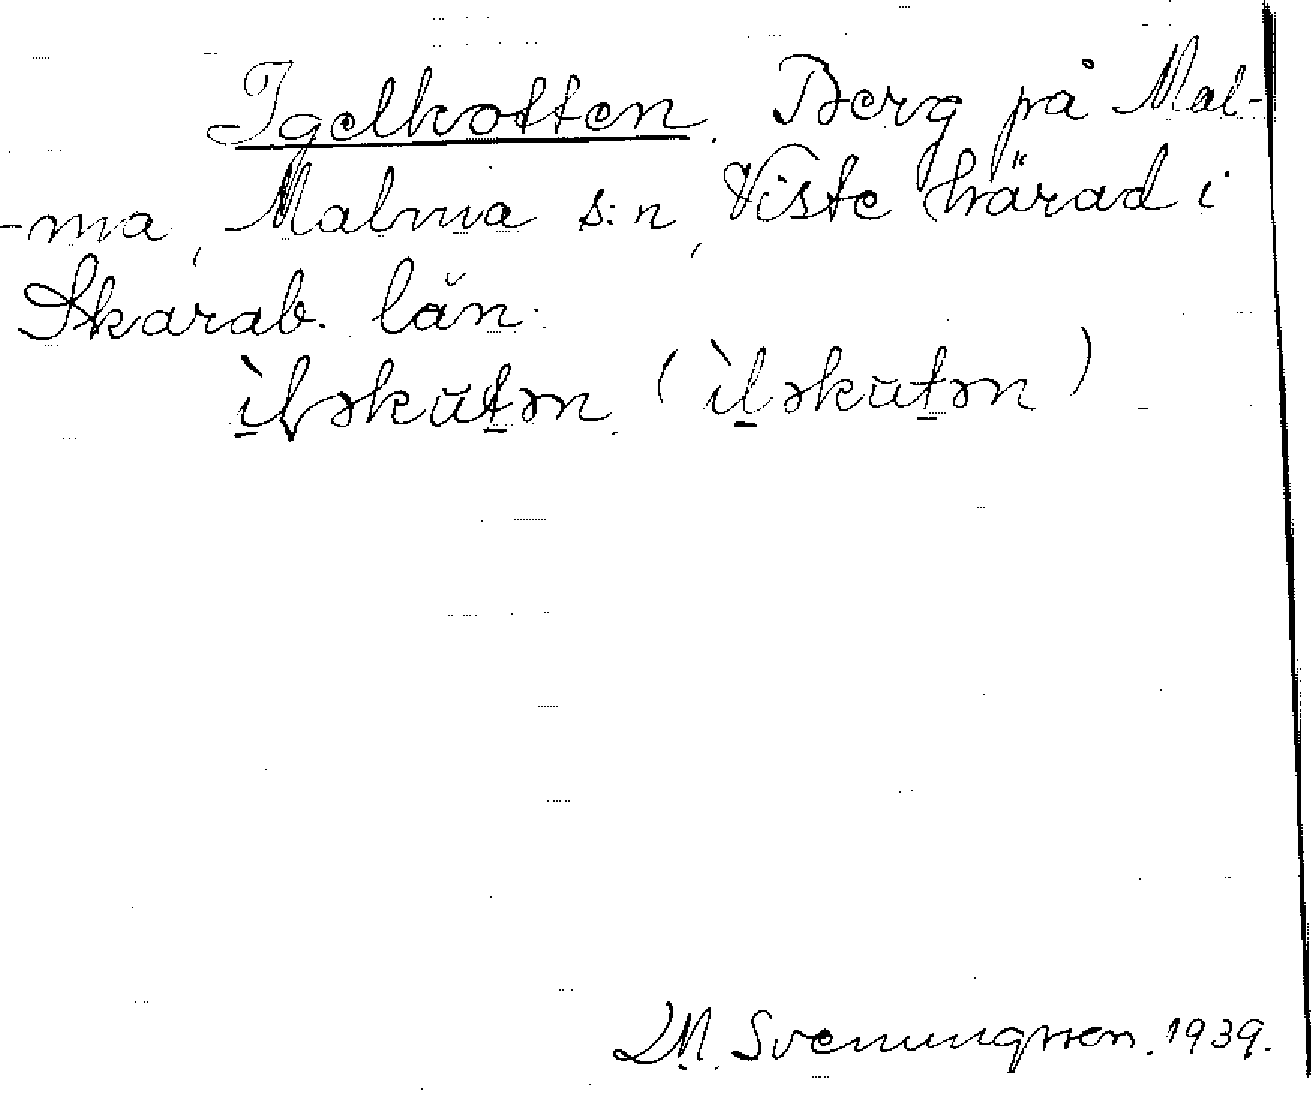 Igelkotten. Berg på Mal-
-ma, Malma s:n, Viste härad i
Skarab. län.
ìləkutən (ìləkutən)
M. Svenungsson. 1939.